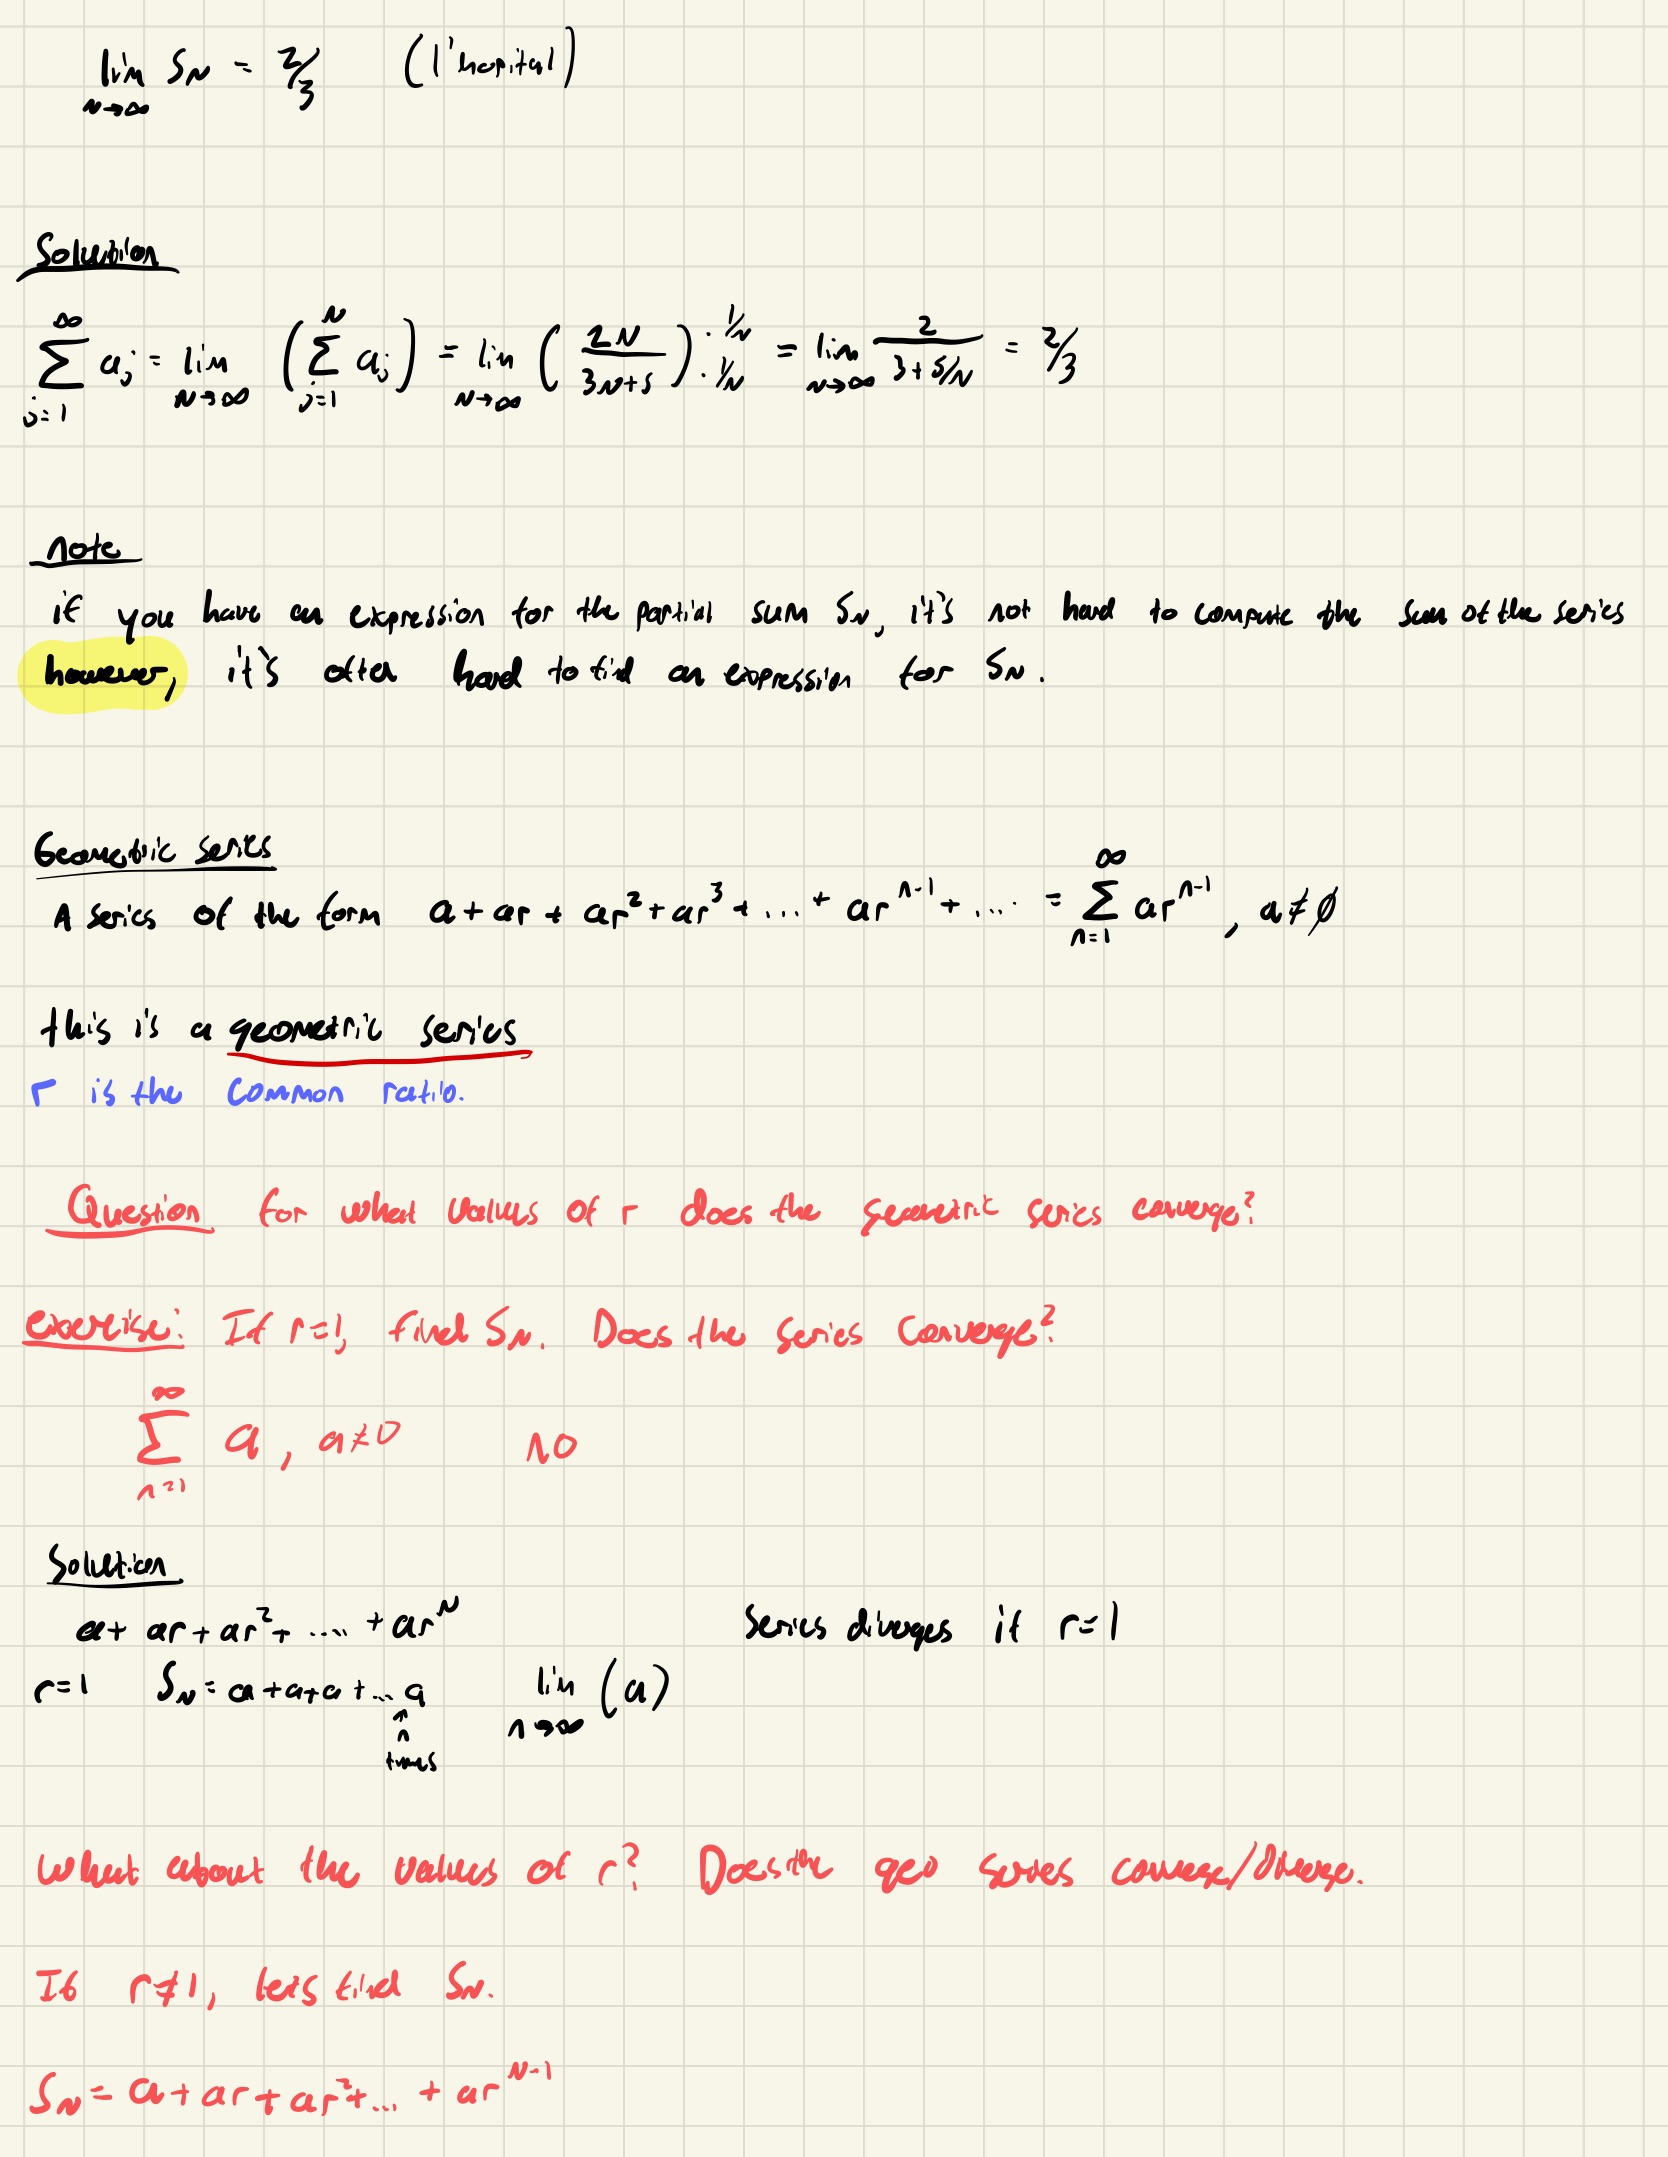 lim_{N→∞} S_N = 2/3 (l'hopital)
Solution
∑_{j=1}^{∞} a_j = lim_{N→∞} (∑_{j=1}^{N} a_j) = lim_{N→∞} (2N / 3N+5) · 1/N / · 1/N = lim_{N→∞} 2 / (3 + 5/N) = 2/3
note
if you have an expression for the partial sum S_N, it's not hard to compute the sum of the series
however, it's often hard to find an expression for S_N.
Geometric series
A series of the form a + ar + ar² + ar³ + .... + ar^{n-1} + .... = ∑_{n=1}^{∞} ar^{n-1}, a ≠ 0
this is a geometric series
r is the common ratio.
Question for what values of r does the geometric series converge?
exercise: If r=1, find S_N. Does the series converge?
∑_{n=1}^{∞} a, a≠0 no
Solution
a + ar + ar² + ..... + ar^N Series diverges if r=1
r=1 S_N = a + a + a + ... a lim_{n→∞} (a)
↑
n
times
What about the values of r? Does the geo series converge/Diverge.
If r≠1, lets find S_N.
S_N = a + ar + ar² + ... + ar^{N-1}